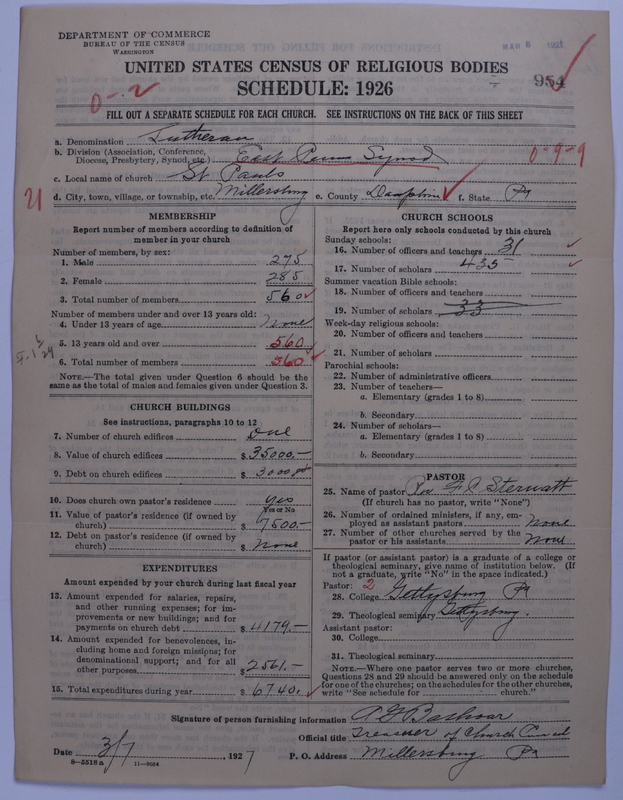 DEPARTMENT OF COMMERCE
BUREAU OF THE CENSUS
WASHINGTON
UNITED STATES CENSUS OF RELIGIOUS BODIES
SCHEDULE: 1926
954
0-.2
FILL OUT A SEPARATE SCHEDULE FOR EACH CHURCH. SEE INSTRUCTIONS ON THE BACK OF THIS SHEET
a. Denomination Lutheran
b. Division (Association, Conference, Diocese, Presbytery, Synod, etc.) East Penna Synod 0-9-9
c. Local name of church St Pauls
21 d. City, town, village, or township, etc. Millersburg e. County Dauphin f. State Pa
MEMBERSHIP
Report number of members according to definition of
member in your church
Number of members, by sex:
1. Male 275
2. Female 285
3. Total number of members 560
Number of members under and over 13 years old:
4. Under 13 years of age None
5. 13 years old and over 560
6. Total number of members 560
NOTE.—The total given under Question 6 should be the
same as the total of males and females given under Question 3.
CHURCH BUILDINGS
See instructions, paragraphs 10 to 12
7. Number of church edifices One
8. Value of church edifices $35000.-
9. Debt on church edifices $3000
10. Does church own pastor's residence yes
Yes or No
11. Value of pastor's residence (if owned by
church) $7500.-
12. Debt on pastor's residence (if owned by
church) $ None
EXPENDITURES
Amount expended by your church during last fiscal year
13. Amount expended for salaries, repairs,
and other running expenses; for im-
provements or new buildings; and for
payments on church debt $4179.-
14. Amount expended for benevolences, in-
cluding home and foreign missions; for
denominational support; and for all
other purposes $2561.-
15. Total expenditures during year $6740.
CHURCH SCHOOLS
Report here only schools conducted by this church
Sunday schools:
16. Number of officers and teachers 31
17. Number of scholars 435
Summer vacation Bible schools:
18. Number of officers and teachers
19. Number of scholars 33
Week-day religious schools:
20. Number of officers and teachers
21. Number of scholars
Parochial schools:
22. Number of administrative officers
23. Number of teachers—
a. Elementary (grades 1 to 8)
b. Secondary
24. Number of scholars—
a. Elementary (grades 1 to 8)
b. Secondary
PASTOR
25. Name of pastor Rev
(If church has no pastor, write "None")
26. Number of ordained ministers, if any, em-
ployed as assistant pastors None
27. Number of other churches served by the
pastor or his assistants None
If pastor (or assistant pastor) is a graduate of a college or
theological seminary, give name of institution below. (If
not a graduate, write "No" in the space indicated.)
Pastor: 2
28. College Gettysburg Pa
29. Theological seminary Gettysburg
Assistant pastor:
30. College
31. Theological seminary
NOTE.—Where one pastor serves two or more churches,
Questions 28 and 29 should be answered only on the schedule
for one of the churches; on the schedules for the other churches,
write "See schedule for church."
Signature of person furnishing information
Official title Treasurer of Church Council
Date 3/7, 1927 P. O. Address Millersburg Pa
8-5518a 11-9054